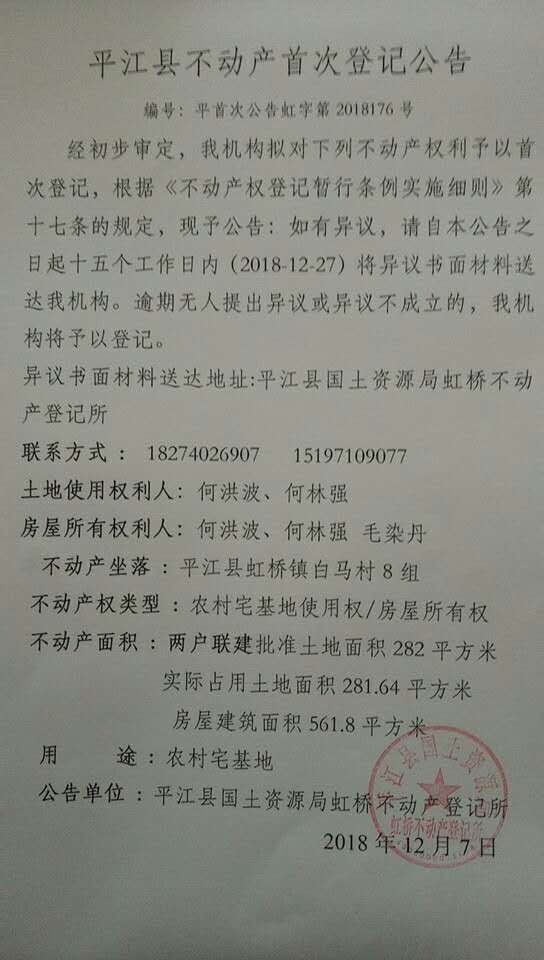 平江县不动产首次登记公告
编号：平首次公告虹字第 2018176 号
经初步审定，我机构拟对下列不动产权利予以首
次登记，根据《不动产权登记暂行条例实施细则》第
十七条的规定，现予公告：如有异议，请自本公告之
日起十五个工作日内（2018-12-27）将异议书面材料送
达我机构。逾期无人提出异议或异议不成立的，我机
构将予以登记。
异议书面材料送达地址:平江县国土资源局虹桥不动
产登记所
联系方式 ： 18274026907 15197109077
土地使用权利人：何洪波、何林强
房屋所有权利人：何洪波、何林强 毛染丹
不动产坐落 ：平江县虹桥镇白马村 8 组
不动产权类型 ：农村宅基地使用权/房屋所有权
不动产面积 ：两户联建批准土地面积 282 平方米
实际占用土地面积 281.64 平方米
房屋建筑面积 561.8 平方米
用 途 ：农村宅基地
公告单位 ：平江县国土资源局虹桥不动产登记所
2018 年 12 月 7 日
平江县国土资源局
虹桥不动产登记所